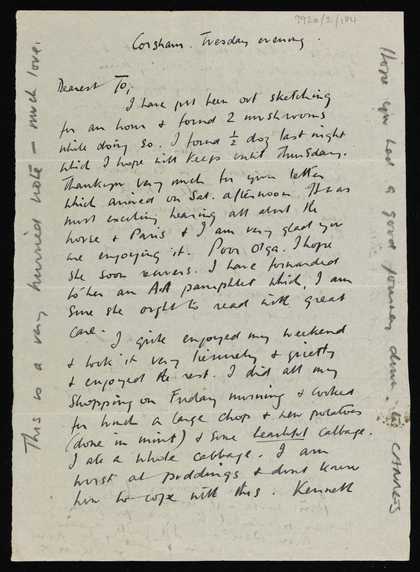 7920/2/104
Corsham. Tuesday evening.
Dearest To,
I have just been out sketching
for an hour & found 2 mushrooms
while doing so. I found ½ doz last night
which I hope will keep until Thursday.
Thankyou very much for your letter
which arrived on Sat. afternoon. It was
most exciting hearing all about the
horse & Paris & I am very glad you
are enjoying it. Poor Olga. I hope
she soon recovers. I have forwarded
to her an AA pamphlet which, I am
sure she ought to read with great
care.
I quite enjoyed my weekend
& took it very leisurely & quietly
& enjoyed the rest. I did all my
shopping on Friday morning & cooked
for lunch a large chop & new potatoes
(done in mint) & some beautiful cabbage.
I ate a whole cabbage. I am
worst at puddings & dont know
how to cope with this. Kenneth
This is a very hurried note – much love.
Hope you had a good journey down to CANNES